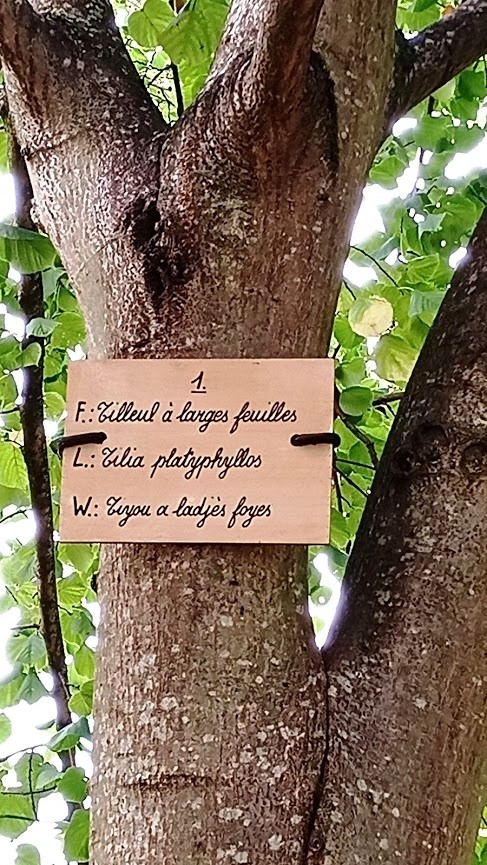 1.
F.: Tilleul à larges feuilles
L.: Tilia platyphyllos
W.: Tiyou a ladjès foyes